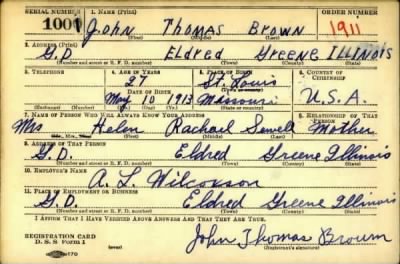 SERIAL NUMBER 1. NAME (Print) ORDER NUMBER
1001 John Thomas Brown 1911
(First) (Middle) (Last)
2. ADDRESS (Print)
G.D. Eldred Greene ILLINOIS
(Number and street or R. F. D. number) (Town) (County) (State)
3. TELEPHONE 4. AGE IN YEARS 5. PLACE OF BIRTH 6. COUNTRY OF CITIZENSHIP
27 St. Louis
DATE OF BIRTH (Town or county)
May 10 1913 Missouri U.S.A.
(Exchange) (Number) (Mo.) (Day) (Yr.) (State or country)
7. NAME OF PERSON WHO WILL ALWAYS KNOW YOUR ADDRESS 8. RELATIONSHIP OF THAT PERSON
Mrs Helen Rachael Sewell Mother
(Mr., Mrs., Miss) (First) (Middle) (Last)
9. ADDRESS OF THAT PERSON
G.D. Eldred Greene Illinois
(Number and street or R. F. D. number) (Town) (County) (State)
10. EMPLOYER'S NAME
A. L. Wilcoxson
11. PLACE OF EMPLOYMENT OR BUSINESS
G.D. Eldred Greene Illinois
(Number and street or R. F. D. number) (Town) (County) (State)
I AFFIRM THAT I HAVE VERIFIED ABOVE ANSWERS AND THAT THEY ARE TRUE.
REGISTRATION CARD
D. S. S. Form 1 John Thomas Brown
(Registrant's signature)